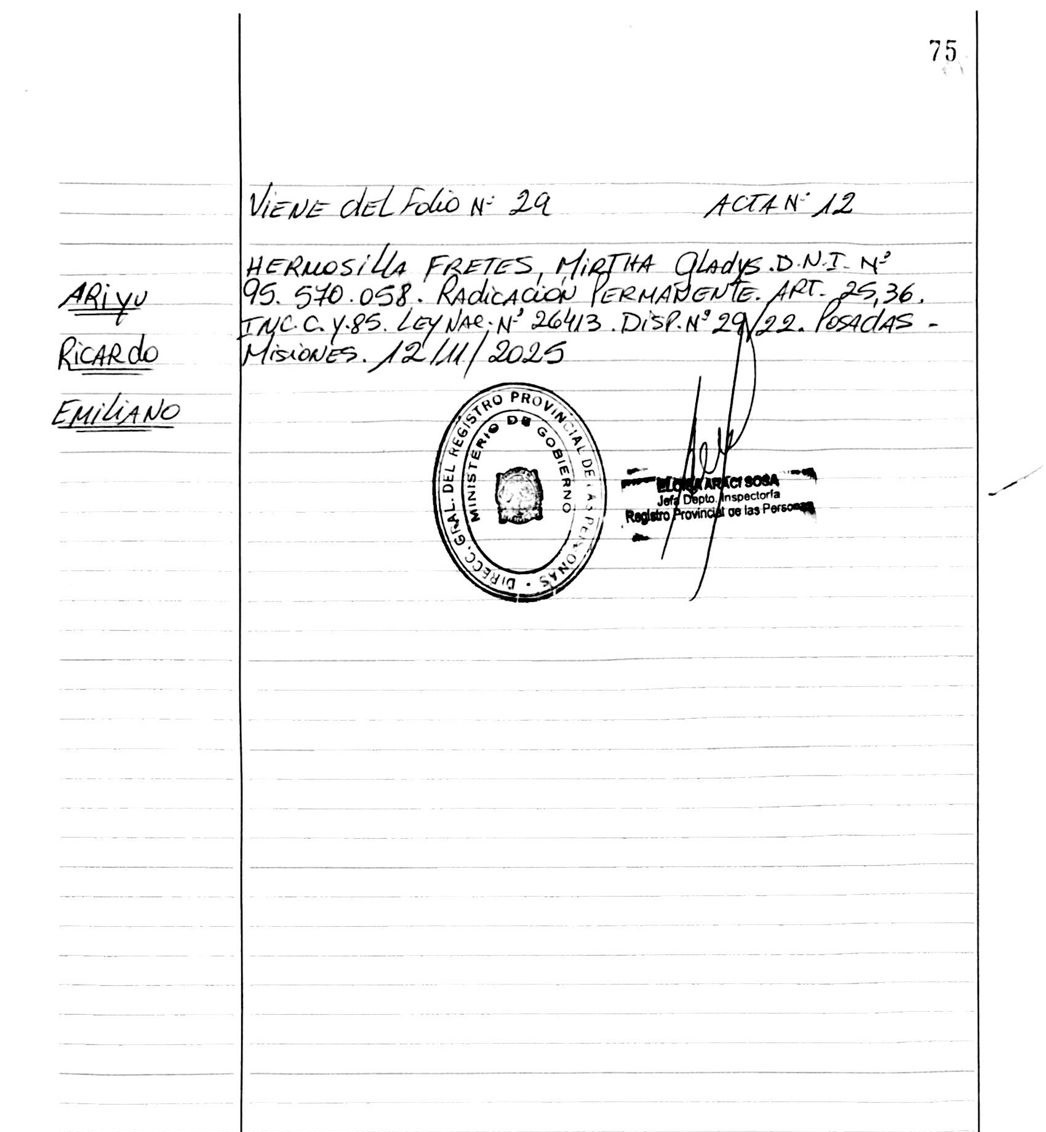 75
VIENE del Folio Nº 29 ACTA Nº 12
HERMOSILLA FRETES, MIRTHA GLADYS. D.N.I. Nº
95.570.058. RADICACIÓN PERMANENTE. ART. 25, 36.
INC. C. Y. 85. LEY NAC. Nº 26413. DISP. Nº 29/22. POSADAS -
MISIONES. 12/11/2025
ARIYU
RICARDO
EMILIANO
DIRECC. GRAL. DEL REGISTRO PROVINCIAL DE LAS PERSONAS
MINISTERIO DE GOBIERNO
ARACI SOSA
Jefa Depto. Inspectoría
Registro Provincial de las Personas